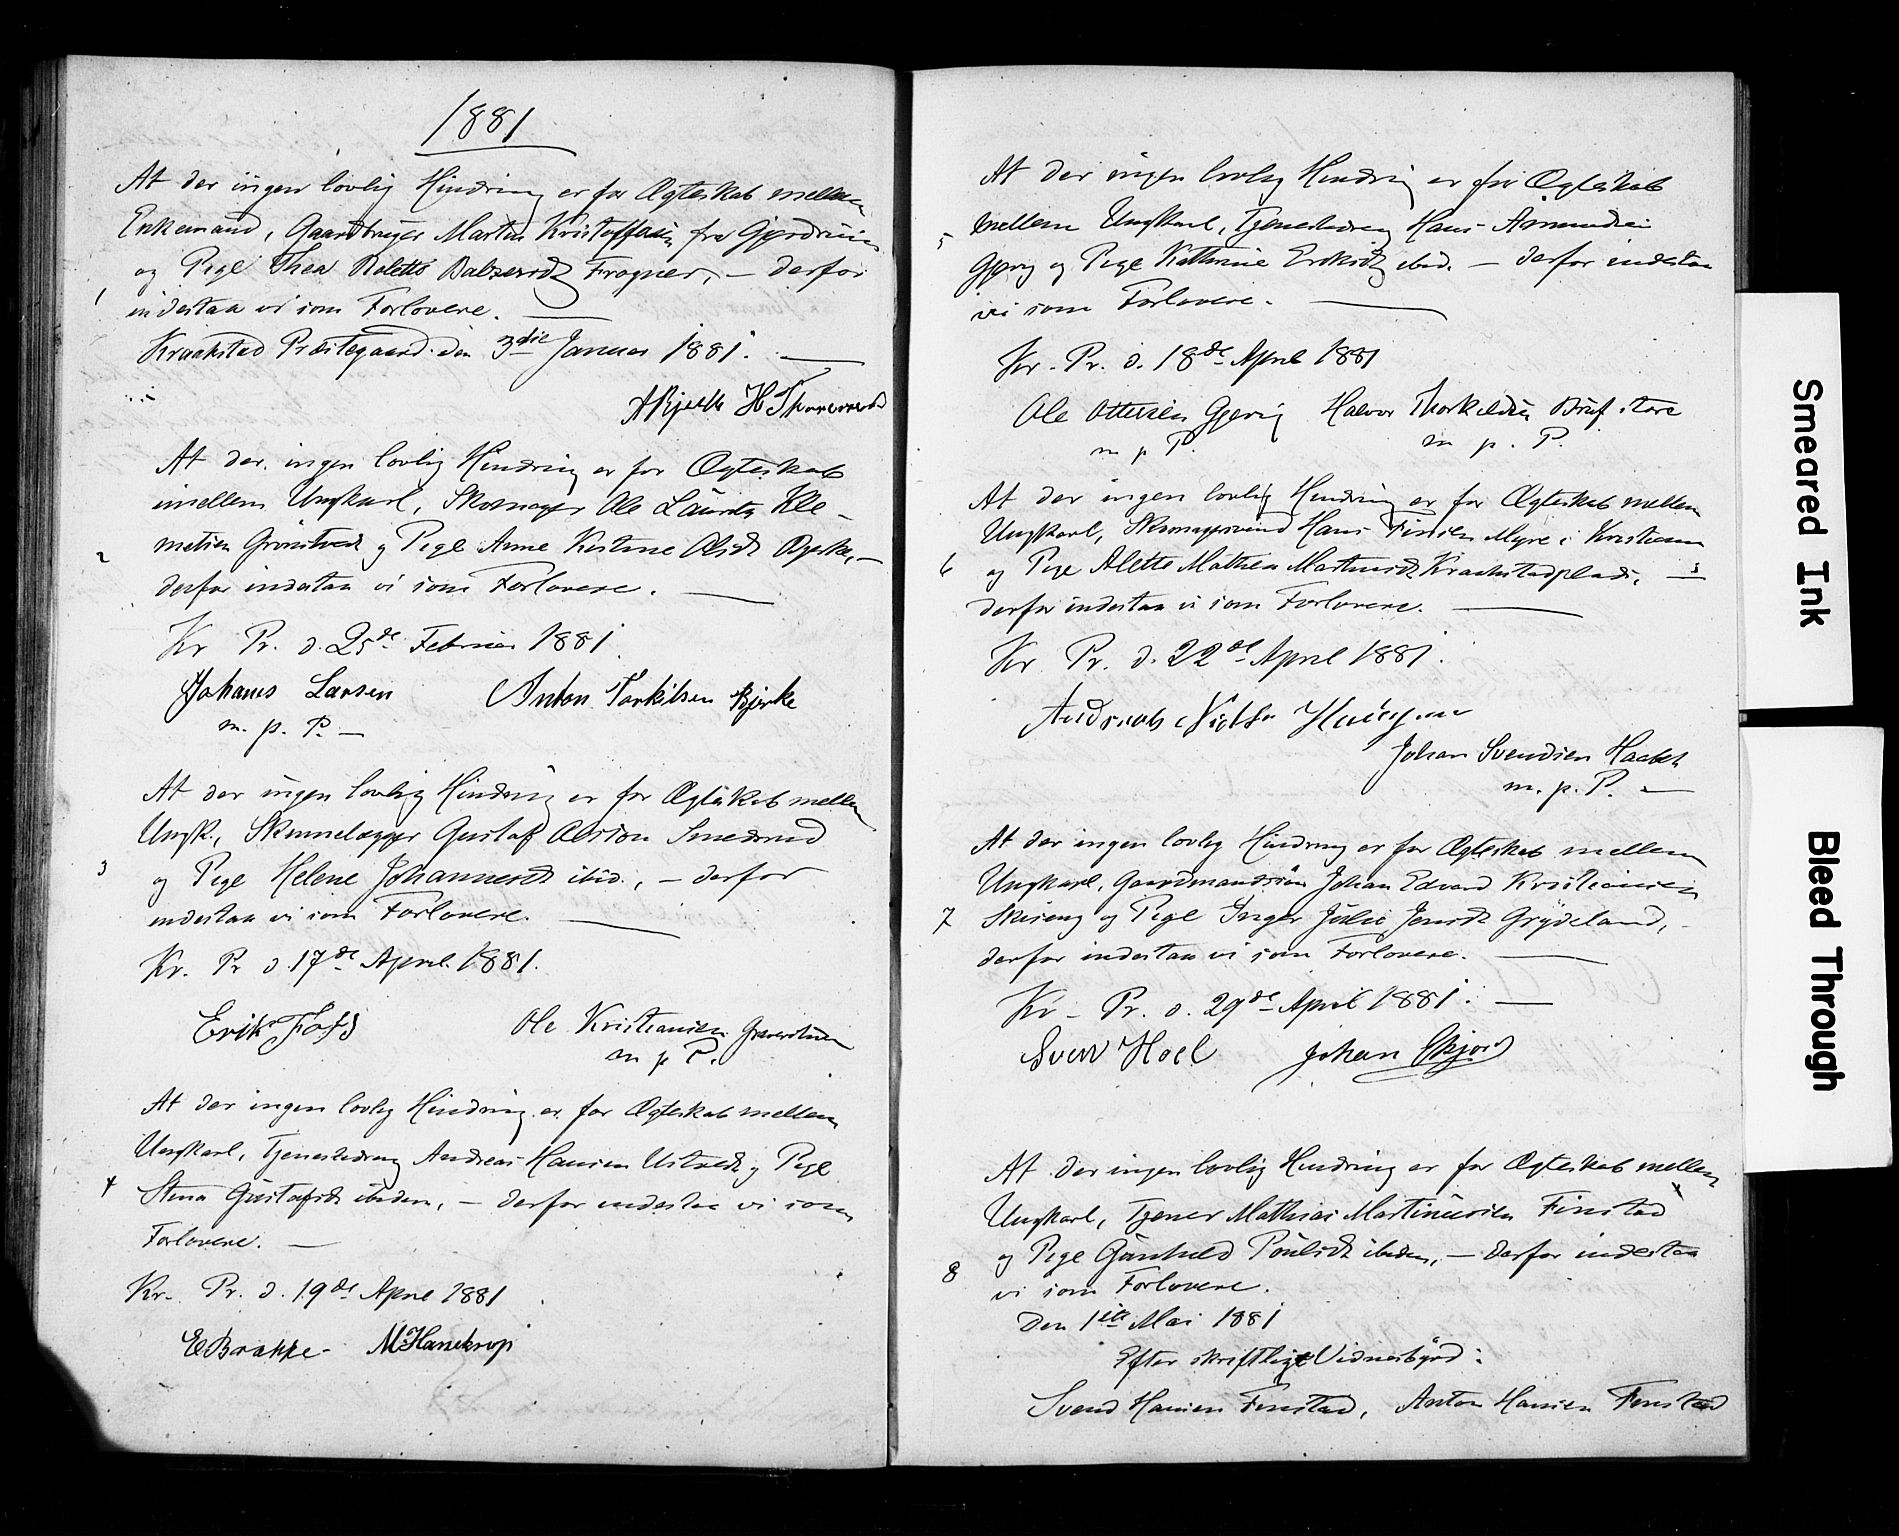 1881
At der ingen lovlig Hindring er for Ægteskab mellem
Enkemand, Gaardbruger Martin Kristoffersen fra Gjerdrum
og Pige Thea Roletta Balzersdt Frogner, — derfor
1
indestaa vi som Forlovere. —
Kraakstad Præstegaard den 3die Januar 1881. —
ABjerke H Thoresrud
At der ingen lovlig Hindring er for Ægteskab
imellem Ungkarl, Skomager Ole Laurits Kle-
metsen Grønstvedt og Pige Anne Kristine Olsdt Bjerke, —
2
derfor indestaa vi som Forlovere. —
Kr Pr. d. 25de Februar 1881
Johanes Larsen Anton Torkilsen Bjerke
m. p. P. —
At der ingen lovlig Hindring er for Ægteskab mellem
Ungk., Skinnelægger Gustaf Olsson Smedsrud
3
og Pige Helene Johannesdt ibid., — derfor
indestaa vi som Forlovere. —
Kr. Pr d. 17de April 1881.
Erik Foss Ole Kristiansen
m p P.
At der ingen lovlig Hindring er for Ægteskab mellem
Ungkarl, Tjenestedreng Andreas Hansen Ustvedt og Pige
4
Stina Gustafsdt ibidem, — derfor indestaa vi som
Forlovere. —
Kr. Pr. d. 19de April 1881
E Brække. M Hanskroji
At der ingen lovlig Hindring er for Ægteskab
5
mellem Ungkarl, Tjenestedreng Hans Amundsen
Gjevig og Pige Kathrine Eriksdt ibid. — derfor indestaa
vi som Forlovere. —
Kr. Pr. d. 18de April 1881
Ole Ottersen Gjevig Halvor Thorkildsen Bruf store
m p P. m. p. P.
At der ingen lovlig Hindring er for Ægteskab mellem
Ungkarl, Skomagersvend Hans Finsen Myre i Kristiania
6
og Pige Alette Mathea Martinsdt Kraakstadplads, —
derfor indestaa vi som Forlovere. —
Kr Pr. d. 22de April 1881.
Andreas Nielsen Haugen
Johan Svendsen Haabet
m. p. P. —
At der ingen lovlig Hindring er for Ægteskab mellem
Ungkarl, Gaardmandssøn Johan Edvard Kristiansen
7
Skiseng og Pige Inger Julie Jensdt Grydeland,
derfor indestaa vi som Forlovere. —
Kr. Pr. d. 29de April 1881. —
Sven Hoel Johan Skjor
At der ingen lovlig Hindring er for Ægteskab mellem
Ungkarl, Tjener Mathias Martinusen Finstad
og Pige Gunhild Poulsdt ibidem, — derfor indestaa
8
vi som Forlovere.
Den 1ste Mai 1881
Efter skriftligt Vidnesbyrd:
Svend Hansen Finstad, Anton Hansen Finstad
Smeared Ink
Bleed Through